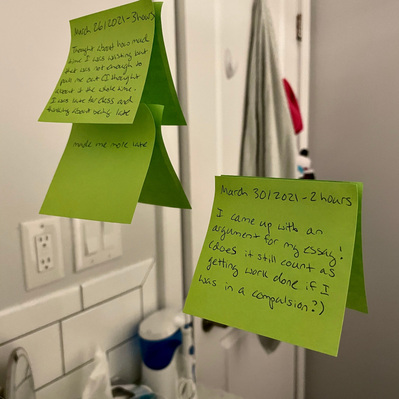 March 26/2021 - 3 hours
Thought about how much
time I was wasting but
that was not enough to
pull me out (I thought
about it the whole time.
I was late for class and
thinking about being late
made me more late
March 30/2021 - 2 hours
I came up with an
argument for my essay!
(does it still count as
getting work done if I
was in a compulsion?)